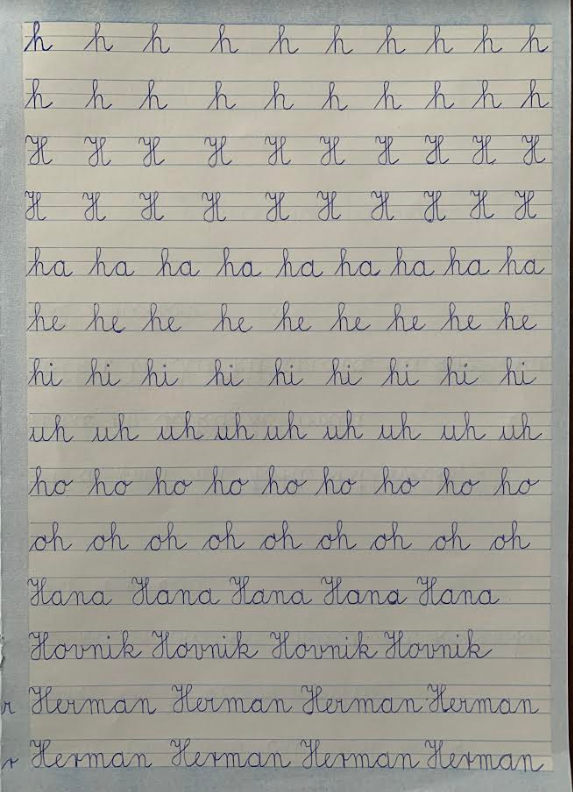 h h h h h h h h h h
h h h h h h h h h h
H H H H H H H H H H
H H H H H H H H H H
ha ha ha ha ha ha ha ha ha
he he he he he he he he he
hi hi hi hi hi hi hi hi hi
uh uh uh uh uh uh uh uh uh
ho ho ho ho ho ho ho ho ho
oh oh oh oh oh oh oh oh oh
Hana Hana Hana Hana Hana
Hovnik Hovnik Hovnik Hovnik
r Herman Herman Herman Herman
r Herman Herman Herman Herman